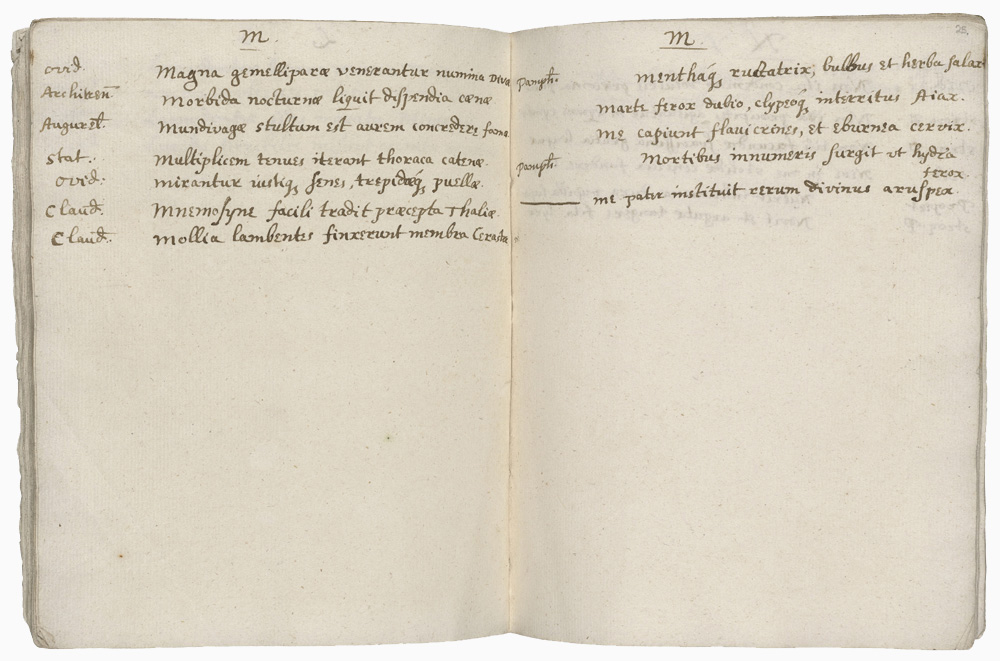 M
ovid. Magna gemelliparæ venerantur numina Divæ
Architren̄ Morbida nocturnæ liquit dispendia cænæ
Augurel. Mundivagæ stultum est aurem concredere famæ
Stat. Multiplicem tenues iterant thoraca catenæ.
ovid. mirantur iustiq, senes, trepidæq, puellæ.
Claud. Mnemosyne facili tradit præcepta Thaliæ.
Claud. Mollia lambentes finxerunt membra Cerastæ
M
25.
Pamph. menthaq, ructatrix, bulbus et herba salax
marte ferox dubio, clypeoq, interritus Aiax.
me capiunt flavicrines, et eburnea cervix.
Pamph. Mortibus innumeris surgit ut hydra
ferox.
me pater instituit rerum divinus aruspex.